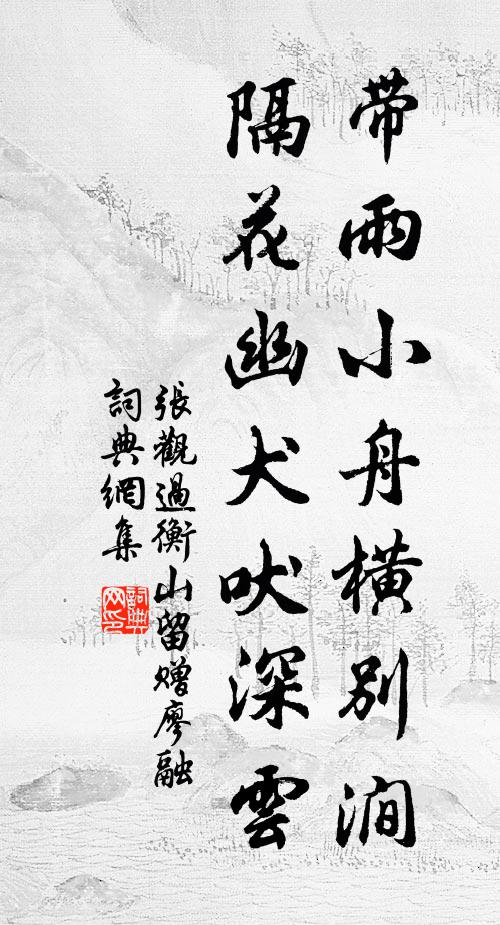 带雨小舟橫別澗
隔花幽犬吠深雲
張觀過衡山留赠廖融
詞典網集
詞典
网印